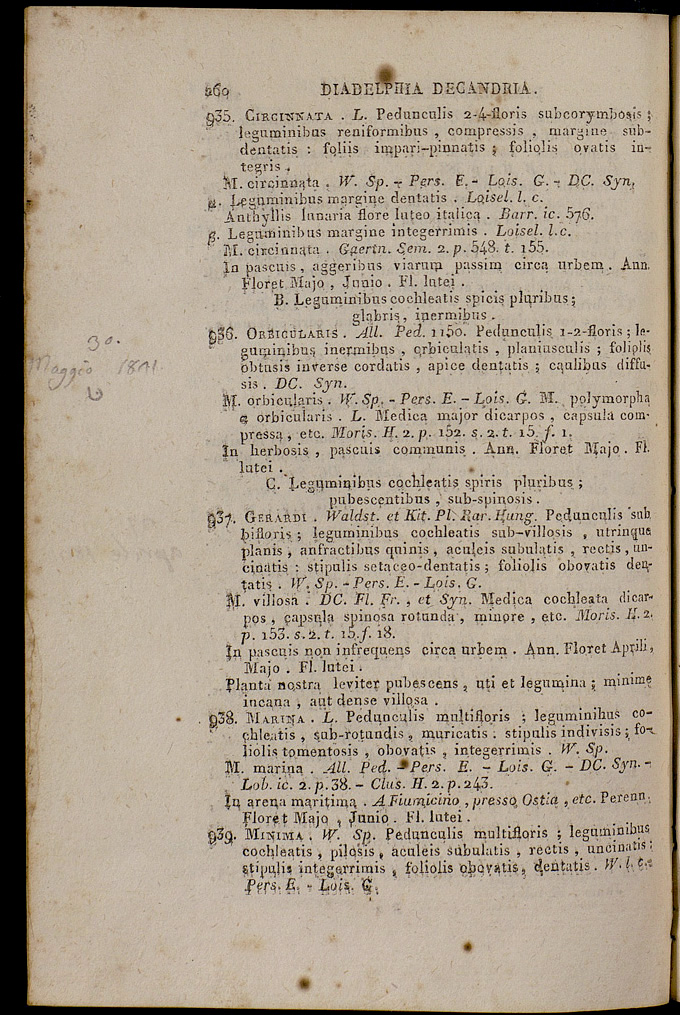 260 DIADELPHIA DECANDRIA.
935. CIRCINNATA . L. Pedunculis 2-4-floris subcorymbosis ;
leguminibus reniformibus , compressis , margine sub-
dentatis : foliis impari-pinnatis ; foliolis ovatis in-
tegris .
M. circinnata . W. Sp. - Pers. E. - Lois. G. - DC. Syn.
α. Leguminibus margine dentatis . Loisel. l. c.
Anthyllis lunaria flore luteo italica . Barr. ic. 576.
β. Leguminibus margine integerrimis . Loisel. l.c.
M. circinnata . Gaertn. Sem. 2. p. 548. t. 155.
In pascuis , aggeribus viarum passim circa urbem . Ann.
Floret Majo , Junio . Fl. lutei .
B. Leguminibus cochleatis spicis pluribus ;
glabris, inermibus .
936. ORBICULARIS . All. Ped. 1150. Pedunculis 1-2-floris ; le-
guminibus inermibus , orbiculatis , planiusculis ; foliolis
obtusis inverse cordatis , apice dentatis ; caulibus diffu-
sis . DC. Syn.
30.
Maggio 1841.
M. orbicularis . W. Sp. - Pers. E. - Lois. G. M. polymorpha
α orbicularis . L. Medica major dicarpos , capsula com-
pressa , etc. Moris. H. 2. p. 152. s. 2. t. 15. f. 1.
In herbosis , pascuis communis . Ann. Floret Majo . Fl.
lutei .
C. Leguminibus cochleatis spiris pluribus ;
pubescentibus , sub-spinosis .
937. GERARDI . Waldst. et Kit. Pl. Rar. Hung. Pedunculis sub
bifloris ; leguminibus cochleatis sub-villosis , utrinque
planis , anfractibus quinis , aculeis subulatis , rectis , un-
cinatis : stipulis setaceo-dentatis ; foliolis obovatis den-
tatis . W. Sp. - Pers. E. - Lois. G.
M. villosa . DC. Fl. Fr. , et Syn. Medica cochleata dicar-
pos , capsula spinosa rotunda , minore , etc. Moris. H. 2.
p. 153. s. 2. t. 15. f. 18.
In pascuis non infrequens circa urbem . Ann. Floret Aprili ,
Majo . Fl. lutei .
Planta nostra leviter pubescens , uti et legumina ; minime
incana , aut dense villosa .
938. MARINA . L. Pedunculis multifloris ; leguminibus co-
chleatis , sub-rotundis , muricatis : stipulis indivisis ; fo-
liolis tomentosis , obovatis , integerrimis . W. Sp.
M. marina . All. Ped. - Pers. E. - Lois. G. - DC. Syn. -
Lob. ic. 2. p. 38. - Clus. H. 2. p. 243.
In arena maritima . A Fiumicino , presso Ostia , etc. Perenn.
Floret Majo , Junio . Fl. lutei .
939. MINIMA . W. Sp. Pedunculis multifloris ; leguminibus
cochleatis , pilosis , aculeis subulatis , rectis , uncinatis :
stipulis integerrimis , foliolis obovatis , dentatis . W. l. c.
Pers. E. - Lois. G.